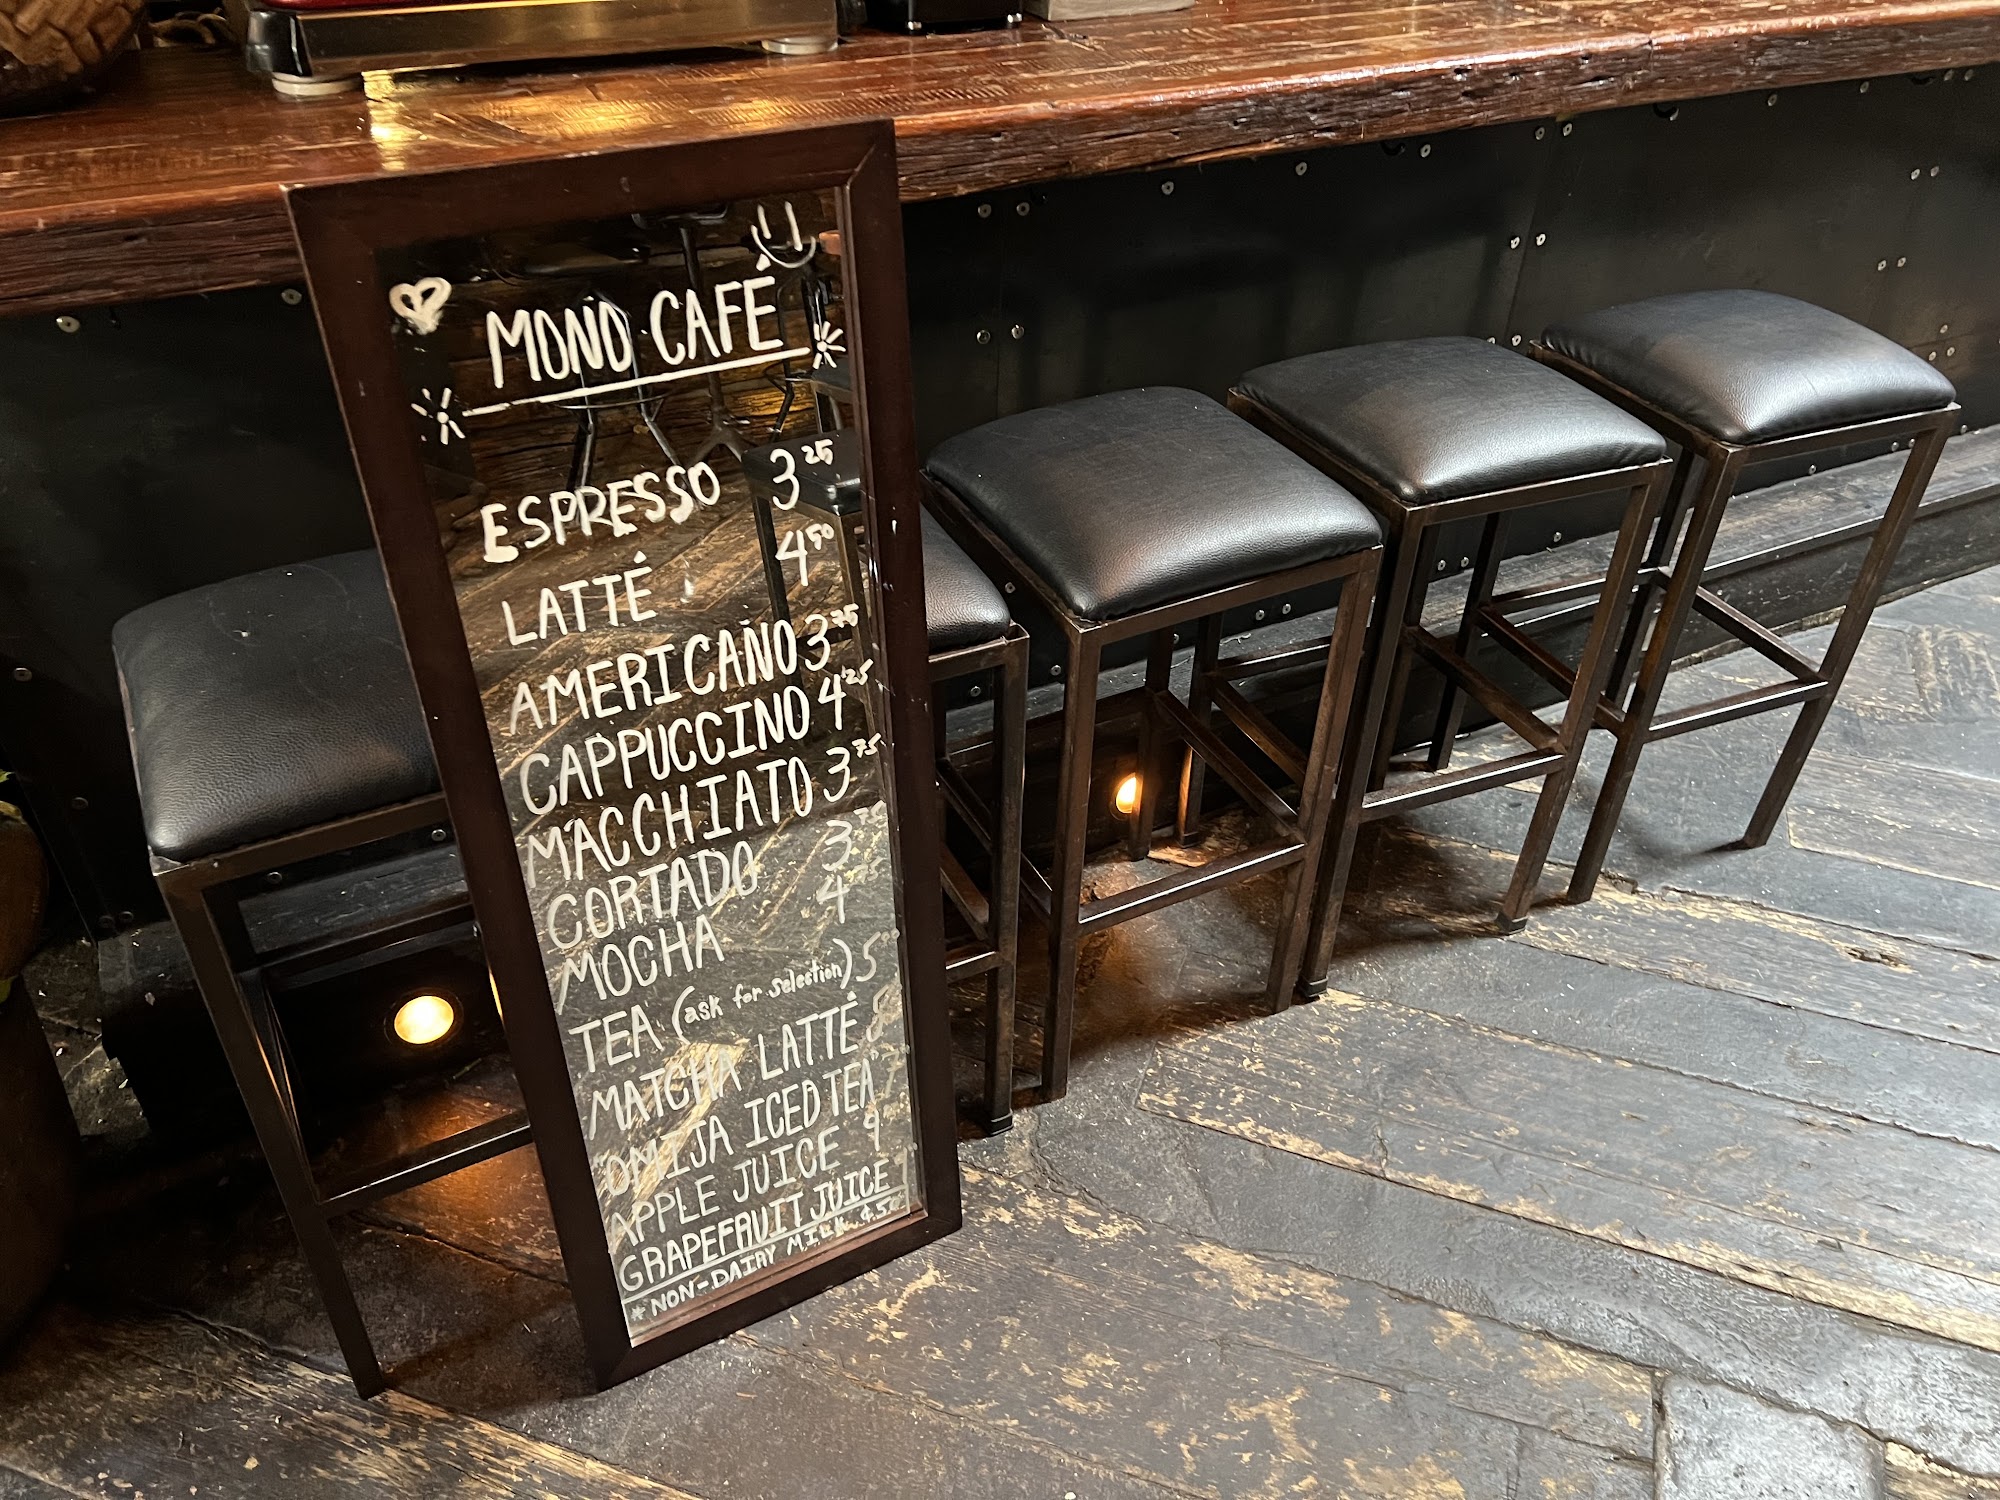 MONO CAFÉ
ESPRESSO 3 25
LATTÉ 4 50
AMERICAÑO 3 75
CAPPUCCINO 4 25
MACCHIATO 3 75
CORTADO 3
MOCHA 4
TEA (ask for selection) 5
MATCHA LATTÉ 5
OMIJA ICED TEA
APPLE JUICE
GRAPEFRUIT JUICE
*NON-DAIRY MILK